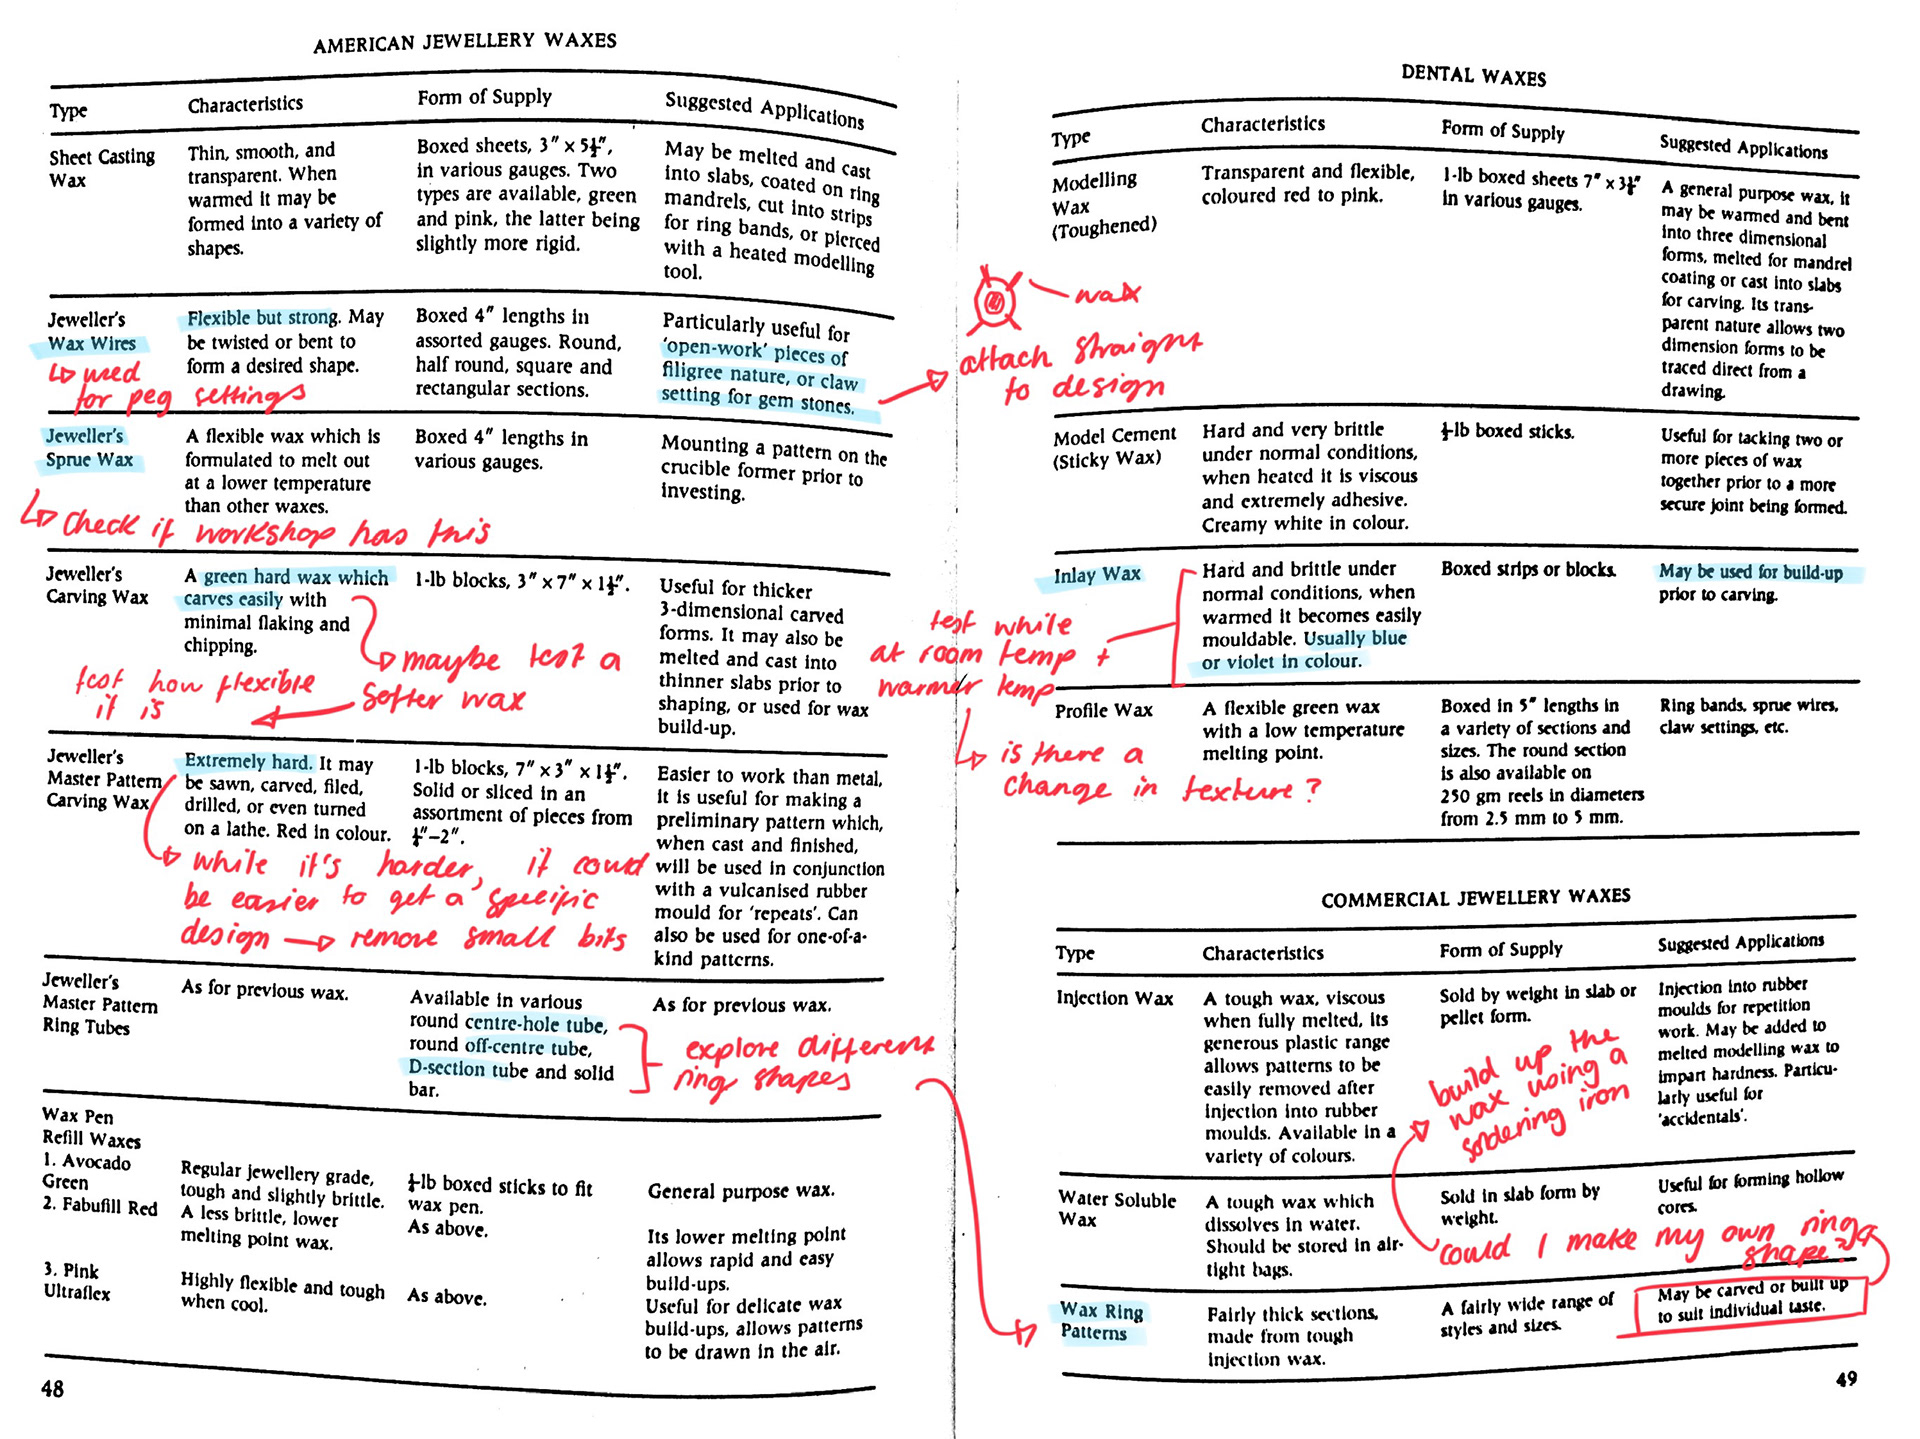 AMERICAN JEWELLERY WAXES
Type
Characteristics
Form of Supply
Suggested Applications
Sheet Casting
Wax
Thin, smooth, and
transparent. When
warmed it may be
formed into a variety of
shapes.
Boxed sheets, 3″ × 5½″,
in various gauges. Two
types are available, green
and pink, the latter being
slightly more rigid.
May be melted and cast
into slabs, coated on ring
mandrels, cut into strips
for ring bands, or pierced
with a heated modelling
tool.
Jeweller's
Wax Wires
↳ used
for peg settings
Flexible but strong. May
be twisted or bent to
form a desired shape.
Boxed 4″ lengths in
assorted gauges. Round,
half round, square and
rectangular sections.
Particularly useful for
'open-work' pieces of
filigree nature, or claw
setting for gem stones.
wax
attach straight
to design
Jeweller's
Sprue Wax
A flexible wax which is
formulated to melt out
at a lower temperature
than other waxes.
Boxed 4″ lengths in
various gauges.
Mounting a pattern on the
crucible former prior to
investing.
check if workshop has this
Jeweller's
Carving Wax
A green hard wax which
carves easily with
minimal flaking and
chipping.
1-lb blocks, 3″ × 7″ × 1½″.
Useful for thicker
3-dimensional carved
forms. It may also be
melted and cast into
thinner slabs prior to
shaping, or used for wax
build-up.
maybe test a
softer wax
test how flexible
it is
Jeweller's
Master Pattern
Carving Wax
Extremely hard. It may
be sawn, carved, filed,
drilled, or even turned
on a lathe. Red in colour.
1-lb blocks, 7″ × 3″ × 1½″.
Solid or sliced in an
assortment of pieces from
¼″–2″.
Easier to work than metal,
it is useful for making a
preliminary pattern which,
when cast and finished,
will be used in conjunction
with a vulcanised rubber
mould for 'repeats'. Can
also be used for one-of-a-
kind patterns.
while it's harder, it could
be easier to get a specific
design → remove small bits
Jeweller's
Master Pattern
Ring Tubes
As for previous wax.
Available in various
round centre-hole tube,
round off-centre tube,
D-section tube and solid
bar.
As for previous wax.
explore different
ring shapes
Wax Pen
Refill Waxes
1. Avocado
Green
Regular jewellery grade,
tough and slightly brittle.
½-lb boxed sticks to fit
wax pen.
General purpose wax.
2. Fabufill Red
A less brittle, lower
melting point wax.
As above.
Its lower melting point
allows rapid and easy
build-ups.
3. Pink
Ultraflex
Highly flexible and tough
when cool.
As above.
Useful for delicate wax
build-ups, allows patterns
to be drawn in the air.
48
DENTAL WAXES
Type
Characteristics
Form of Supply
Suggested Applications
Modelling
Wax
(Toughened)
Transparent and flexible,
coloured red to pink.
1-lb boxed sheets 7″ × 3½″
in various gauges.
A general purpose wax, it
may be warmed and bent
into three dimensional
forms, melted for mandrel
coating or cast into slabs
for carving. Its trans-
parent nature allows two
dimension forms to be
traced direct from a
drawing.
Model Cement
(Sticky Wax)
Hard and very brittle
under normal conditions,
when heated it is viscous
and extremely adhesive.
Creamy white in colour.
½-lb boxed sticks.
Useful for tacking two or
more pieces of wax
together prior to a more
secure joint being formed.
Inlay Wax
Hard and brittle under
normal conditions, when
warmed it becomes easily
mouldable. Usually blue
or violet in colour.
Boxed strips or blocks.
May be used for build-up
prior to carving.
test while
at room temp +
warmer temp
is there a
change in texture?
Profile Wax
A flexible green wax
with a low temperature
melting point.
Boxed in 5″ lengths in
a variety of sections and
sizes. The round section
is also available on
250 gm reels in diameters
from 2.5 mm to 5 mm.
Ring bands, sprue wires,
claw settings, etc.
COMMERCIAL JEWELLERY WAXES
Type
Characteristics
Form of Supply
Suggested Applications
Injection Wax
A tough wax, viscous
when fully melted, its
generous plastic range
allows patterns to be
easily removed after
injection into rubber
moulds. Available in a
variety of colours.
Sold by weight in slab or
pellet form.
Injection into rubber
moulds for repetition
work. May be added to
melted modelling wax to
impart hardness. Particu-
larly useful for
'accidentals'.
build up the
wax using a
soldering iron
Water Soluble
Wax
A tough wax which
dissolves in water.
Should be stored in air-
tight bags.
Sold in slab form by
weight.
Useful for forming hollow
cores.
could I make my own ring
shape?
Wax Ring
Patterns
Fairly thick sections,
made from tough
injection wax.
A fairly wide range of
styles and sizes.
May be carved or built up
to suit individual taste.
49